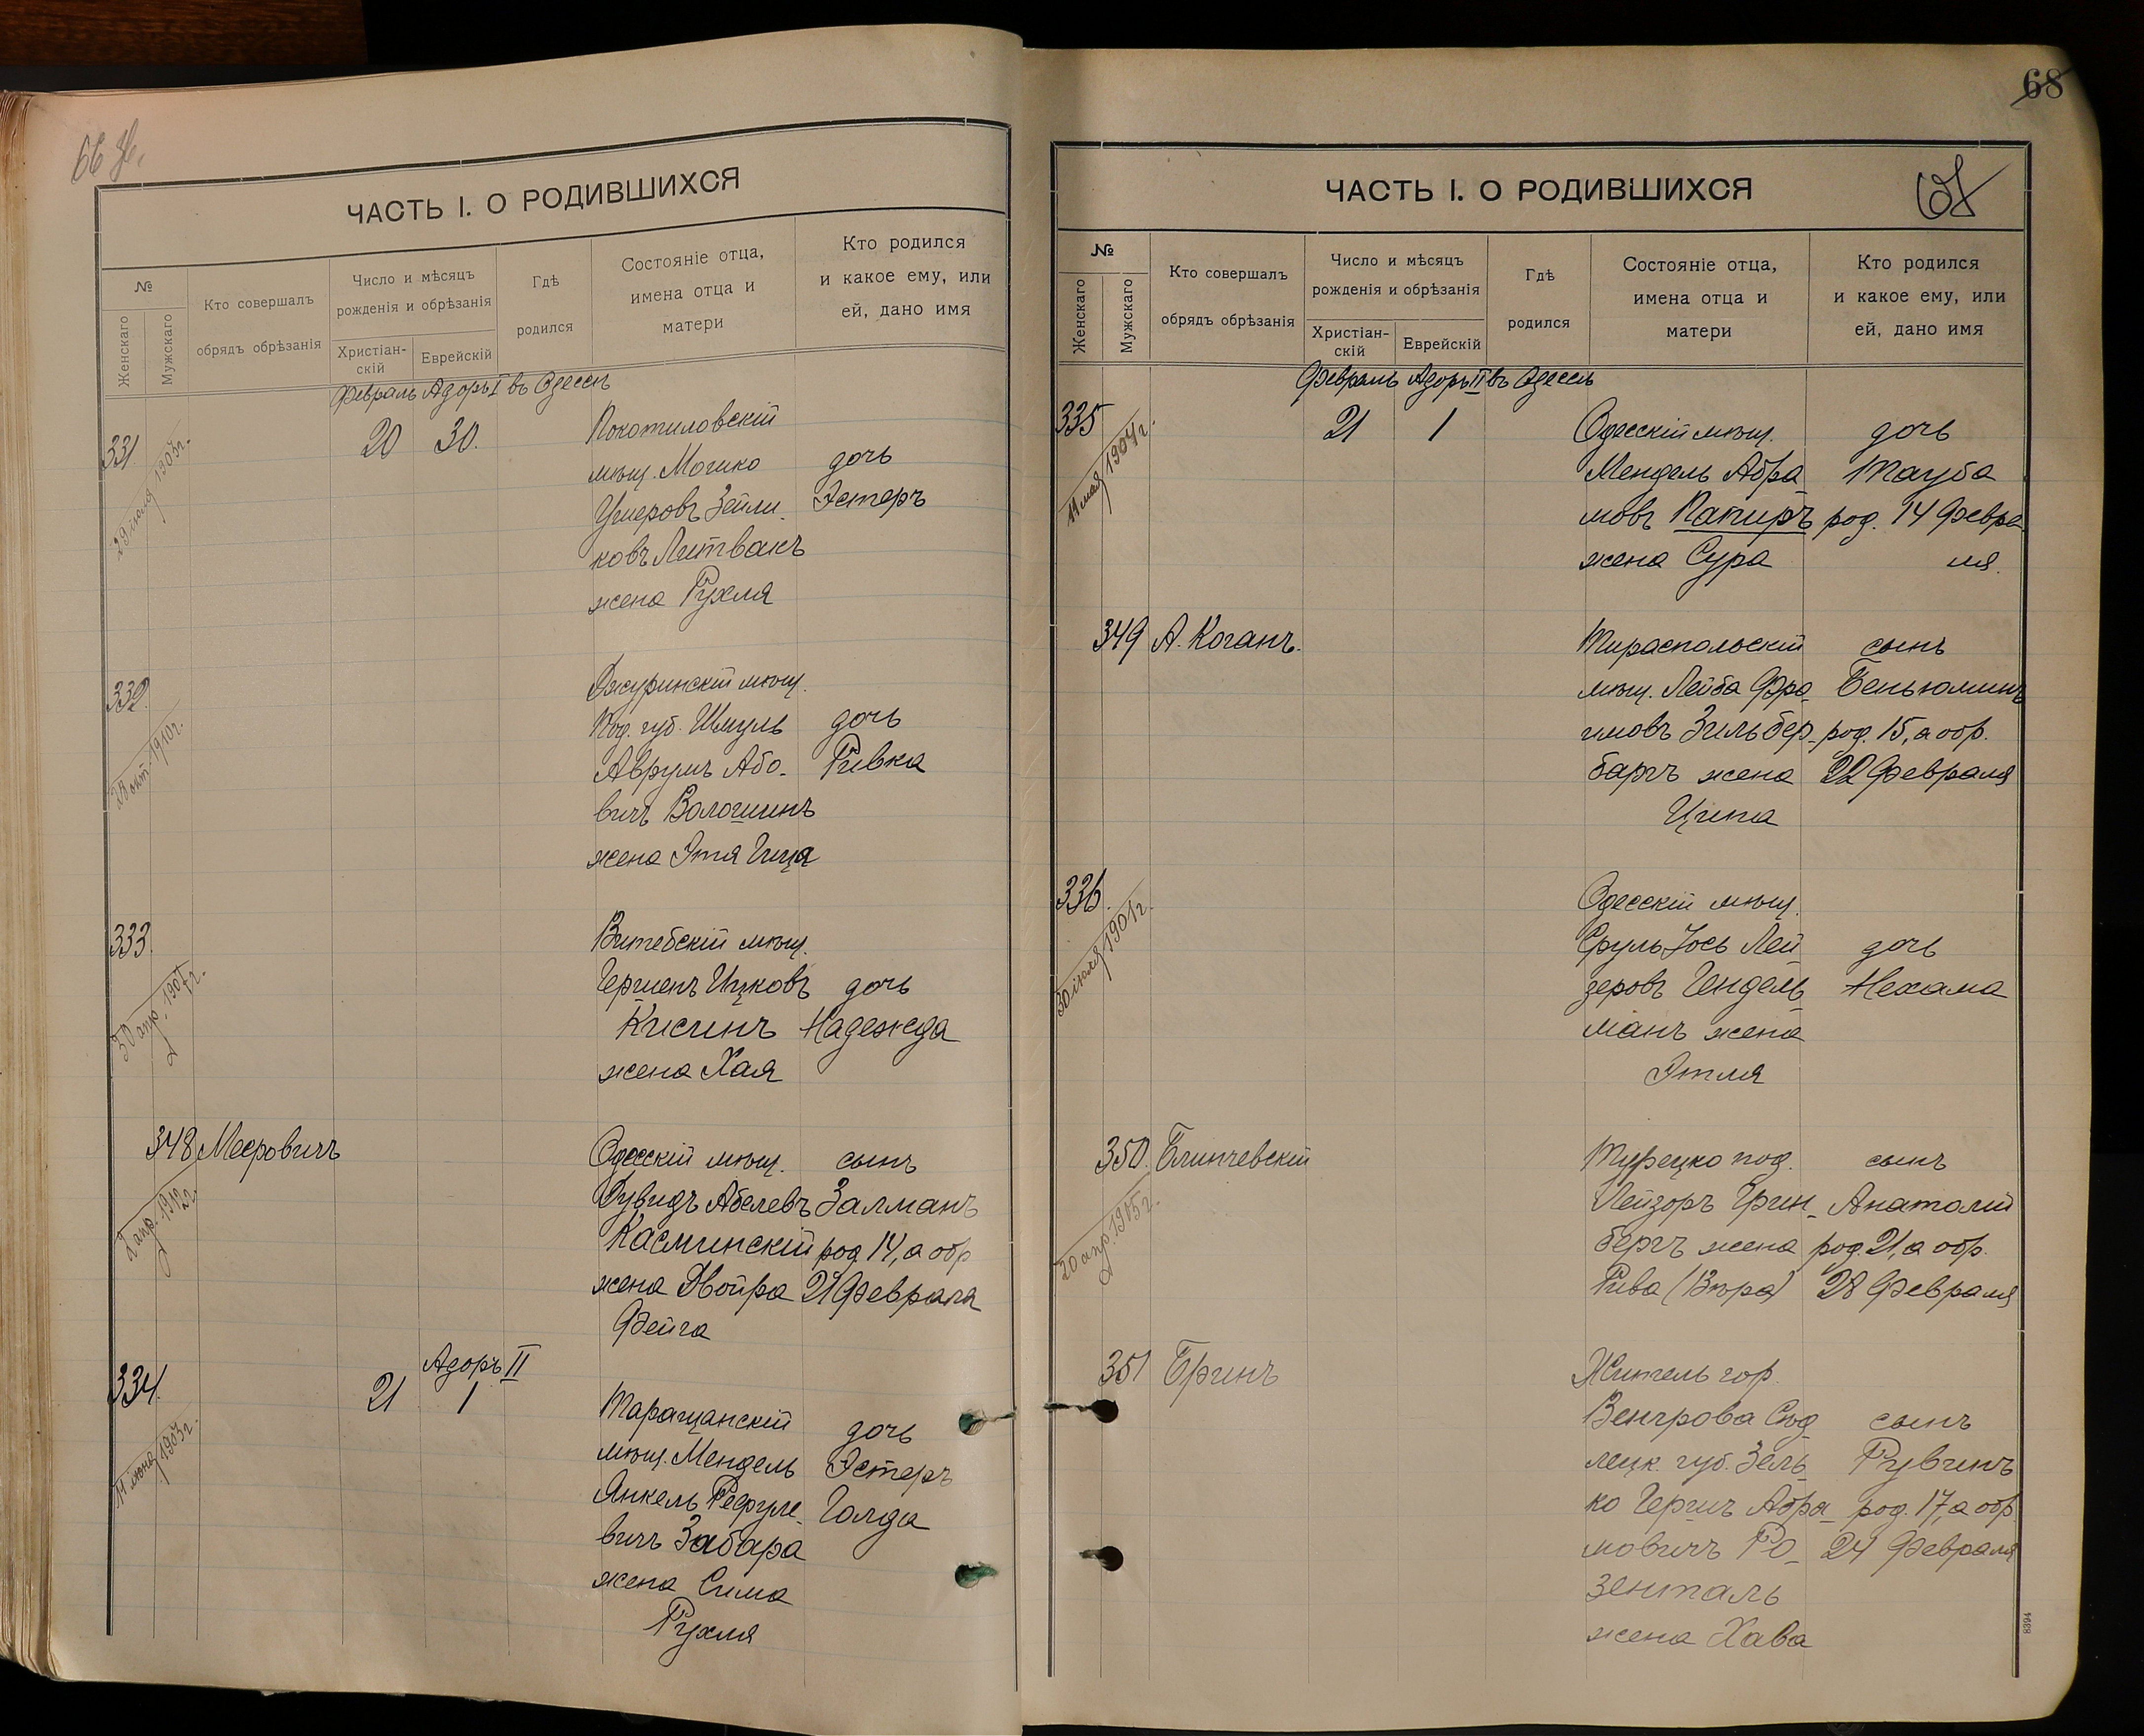 66 Ж.
ЧАСТЬ I. О РОДИВШИХСЯ
№
Женскаго
Мужскаго
Кто совершалъ
обрядъ обрѣзанія
Число и мѣсяцъ
рожденія и обрѣзанія
Христіан-
скій
Еврейскій
Гдѣ
родился
Состояніе отца,
имена отца и
матери
Кто родился
и какое ему, или
ей, дано имя
Февраль Адоръ I въ Одессѣ
331
29 іюля 1903г.
20 30.
Покотиловскій
мѣщ. Мошко
Ушеровъ Зейли-
ковъ Литвакъ
жена Рухля
дочь
Эстеръ
332.
28 окт. 1910г.
Джуринскій мѣщ.
Под. губ. Шмуль
Аврумъ Або-
вичъ Волошинъ
жена Этя Гиця
дочь
Ривка
333.
30 апр. 1907г.
Витебскій мѣщ.
Гершенъ Ицковъ
Кисинъ
жена Хая
дочь
Надежда
348 Мееровичъ
2 апр. 1912г.
Одесскій мѣщ.
Дувидъ Абелевъ
Касминскій
жена Двойра
Фейга
сынъ
Залманъ
род. 14, а обр
21 Февраля
Адоръ II
334.
11 іюна 1903г.
21 1
Таращанскій
мѣщ. Мендель
Янкель Рефуле-
вичъ Забара
жена Сима
Рухля
дочь
Эстеръ
Голда
68
67
ЧАСТЬ I. О РОДИВШИХСЯ
№
Женскаго
Мужскаго
Кто совершалъ
обрядъ обрѣзанія
Число и мѣсяцъ
рожденія и обрѣзанія
Христіан-
скій
Еврейскій
Гдѣ
родился
Состояніе отца,
имена отца и
матери
Кто родился
и какое ему, или
ей, дано имя
Февраль Адоръ II въ Одессѣ
335
11 мая 1904г.
21 1
Одесскій мѣщ.
Мендель Абра
мовъ Папиръ
жена Сура
дочь
Тауба
род. 14 Февра
ля.
349 А. Коганъ.
Тираспольскій
мѣщ. Лейба Фро
имовъ Зильбер-
баргъ жена
Ципа
сынъ
Беньюминъ
род. 15, а обр.
22 Февраля
336.
30 іюля 1901г.
Одесскій мѣщ.
Сруль Іось Лей
зеровъ Гендель
манъ жена
Этля
дочь
Нехама
350. Блинчевскій
20 апр. 1905г.
Турецко под.
Лейзоръ Грин-
бергъ жена
Рива (Вѣра)
сынъ
Анатолій
род. 21, а обр.
28 Февраля
351 Бринъ
Житель гор.
Венгрова Сѣд-
лецк. губ. Зель-
ко Гершъ Абра-
мовичъ Ро-
зенталь
жена Хава
сынъ
Рувинъ
род. 17, а обр
24 Февраля
8394